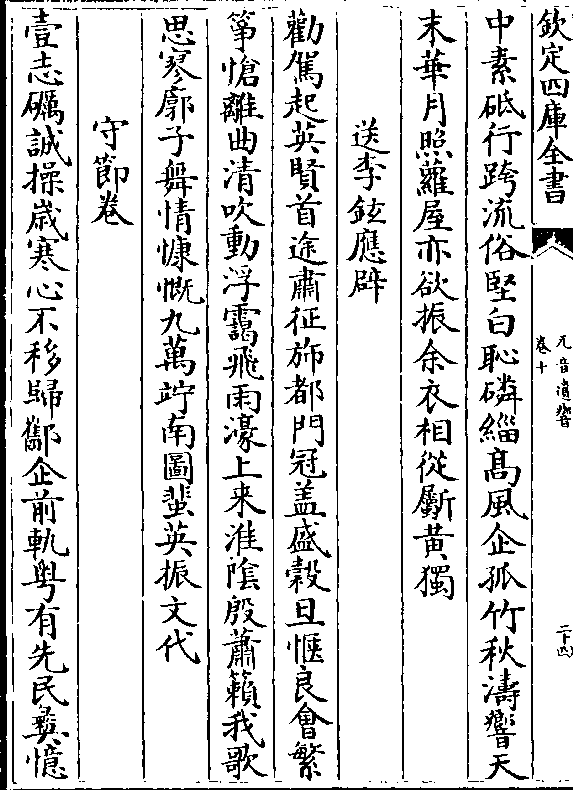 欽定四庫全書
元音遺響
卷十
二十四
中素砥行跨流俗堅白恥磷緇髙風企孤竹秋濤響天
末華月照蘿屋亦欲振余衣相從斸黄獨
送李鉉應辟
勸駕起英賢首途肅征斾都門冠盖盛榖旦愜良會繁
筝愴離曲清吹動浮靄飛雨濠上来淮陰殷蕭籟我歌
思寥廓子舞情慷慨九萬竚南圖蜚英振文代
守節卷
壹志礪誠操嵗寒心不移歸酅企前軌粤有先民彞憶